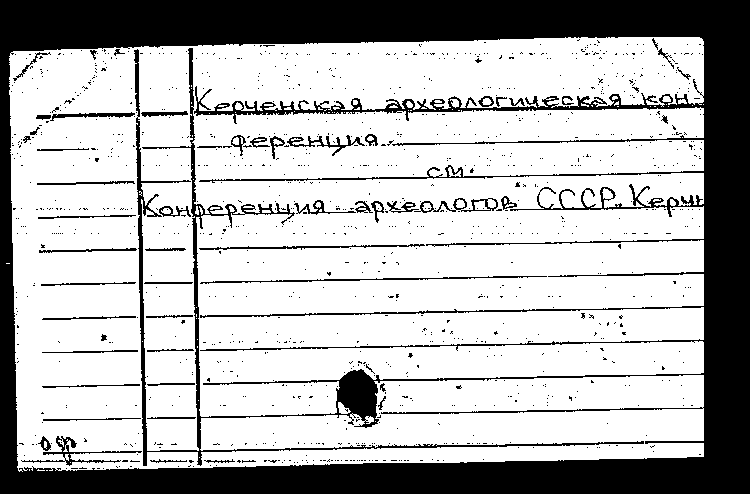 Керченская археологическая кон-
ференция.
см.
Конференция археологов СССР. Керчь